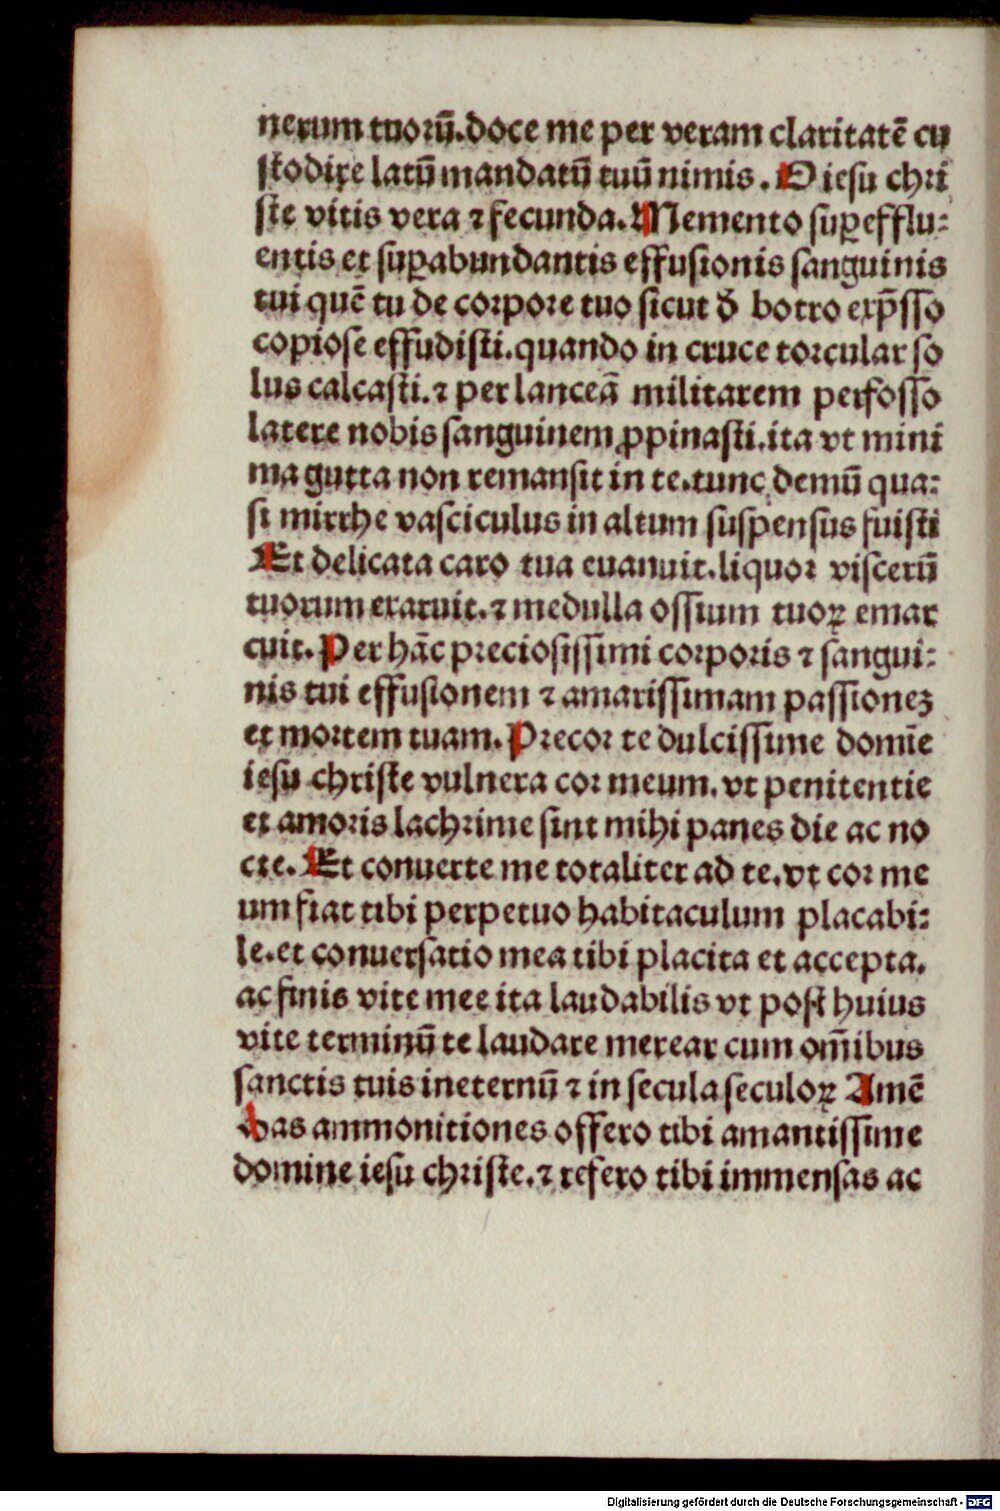 nerum tuorū.doce me per veram claritatē cu
ſtodire latū mandatū tuū nimis. O ieſu chri
ſte vitis vera ⁊ fecunda. Memento ſuꝑefflu⸗
entis et ſuꝑabundantis effuſionis ſanguinis
tui quē tu de corpore tuo ſicut đ botro exp̄ſſo
copioſe effudiſti.quando in cruce torcular ſo
lus calcaſti.⁊ per lanceā militarem perfoſſo
latere nobis ſanguinem ꝓpinaſti.ita vt mini
ma gutta non remanſit in te.tunc demū qua⸗
ſi mirrhe vaſciculus in altum ſuſpenſus fuiſti
Et delicata caro tua euanuit.liquor viſcerū
tuorum exaruit.⁊ medulla oſſium tuoꝝ emar
cuit. Per hāc precioſiſſimi corporis ⁊ ſangui⸗
nis tui effuſionem ⁊ amariſſimam paſſioneꝫ
et mortem tuam. Precor te dulciſſime domīe
ieſu chriſte vulnera cor meum.vt penitentie
et amoris lachrime ſint mihi panes die ac no
cte. Et conuerte me totaliter ad te.vt cor me
um fiat tibi perpetuo habitaculum placabi⸗
le.et conuerſatio mea tibi placita et accepta.
ac finis vite mee ita laudabilis vt poſt huius
vite terminū te laudare merear cum om̄ibus
ſanctis tuis ineternū ⁊ in ſecula ſeculoꝝ Amē
Has ammonitiones offero tibi amantiſſime
domine ieſu chriſte.⁊ refero tibi immenſas ac
Digitalisierung gefördert durch die Deutsche Forschungsgemeinschaft - DFG